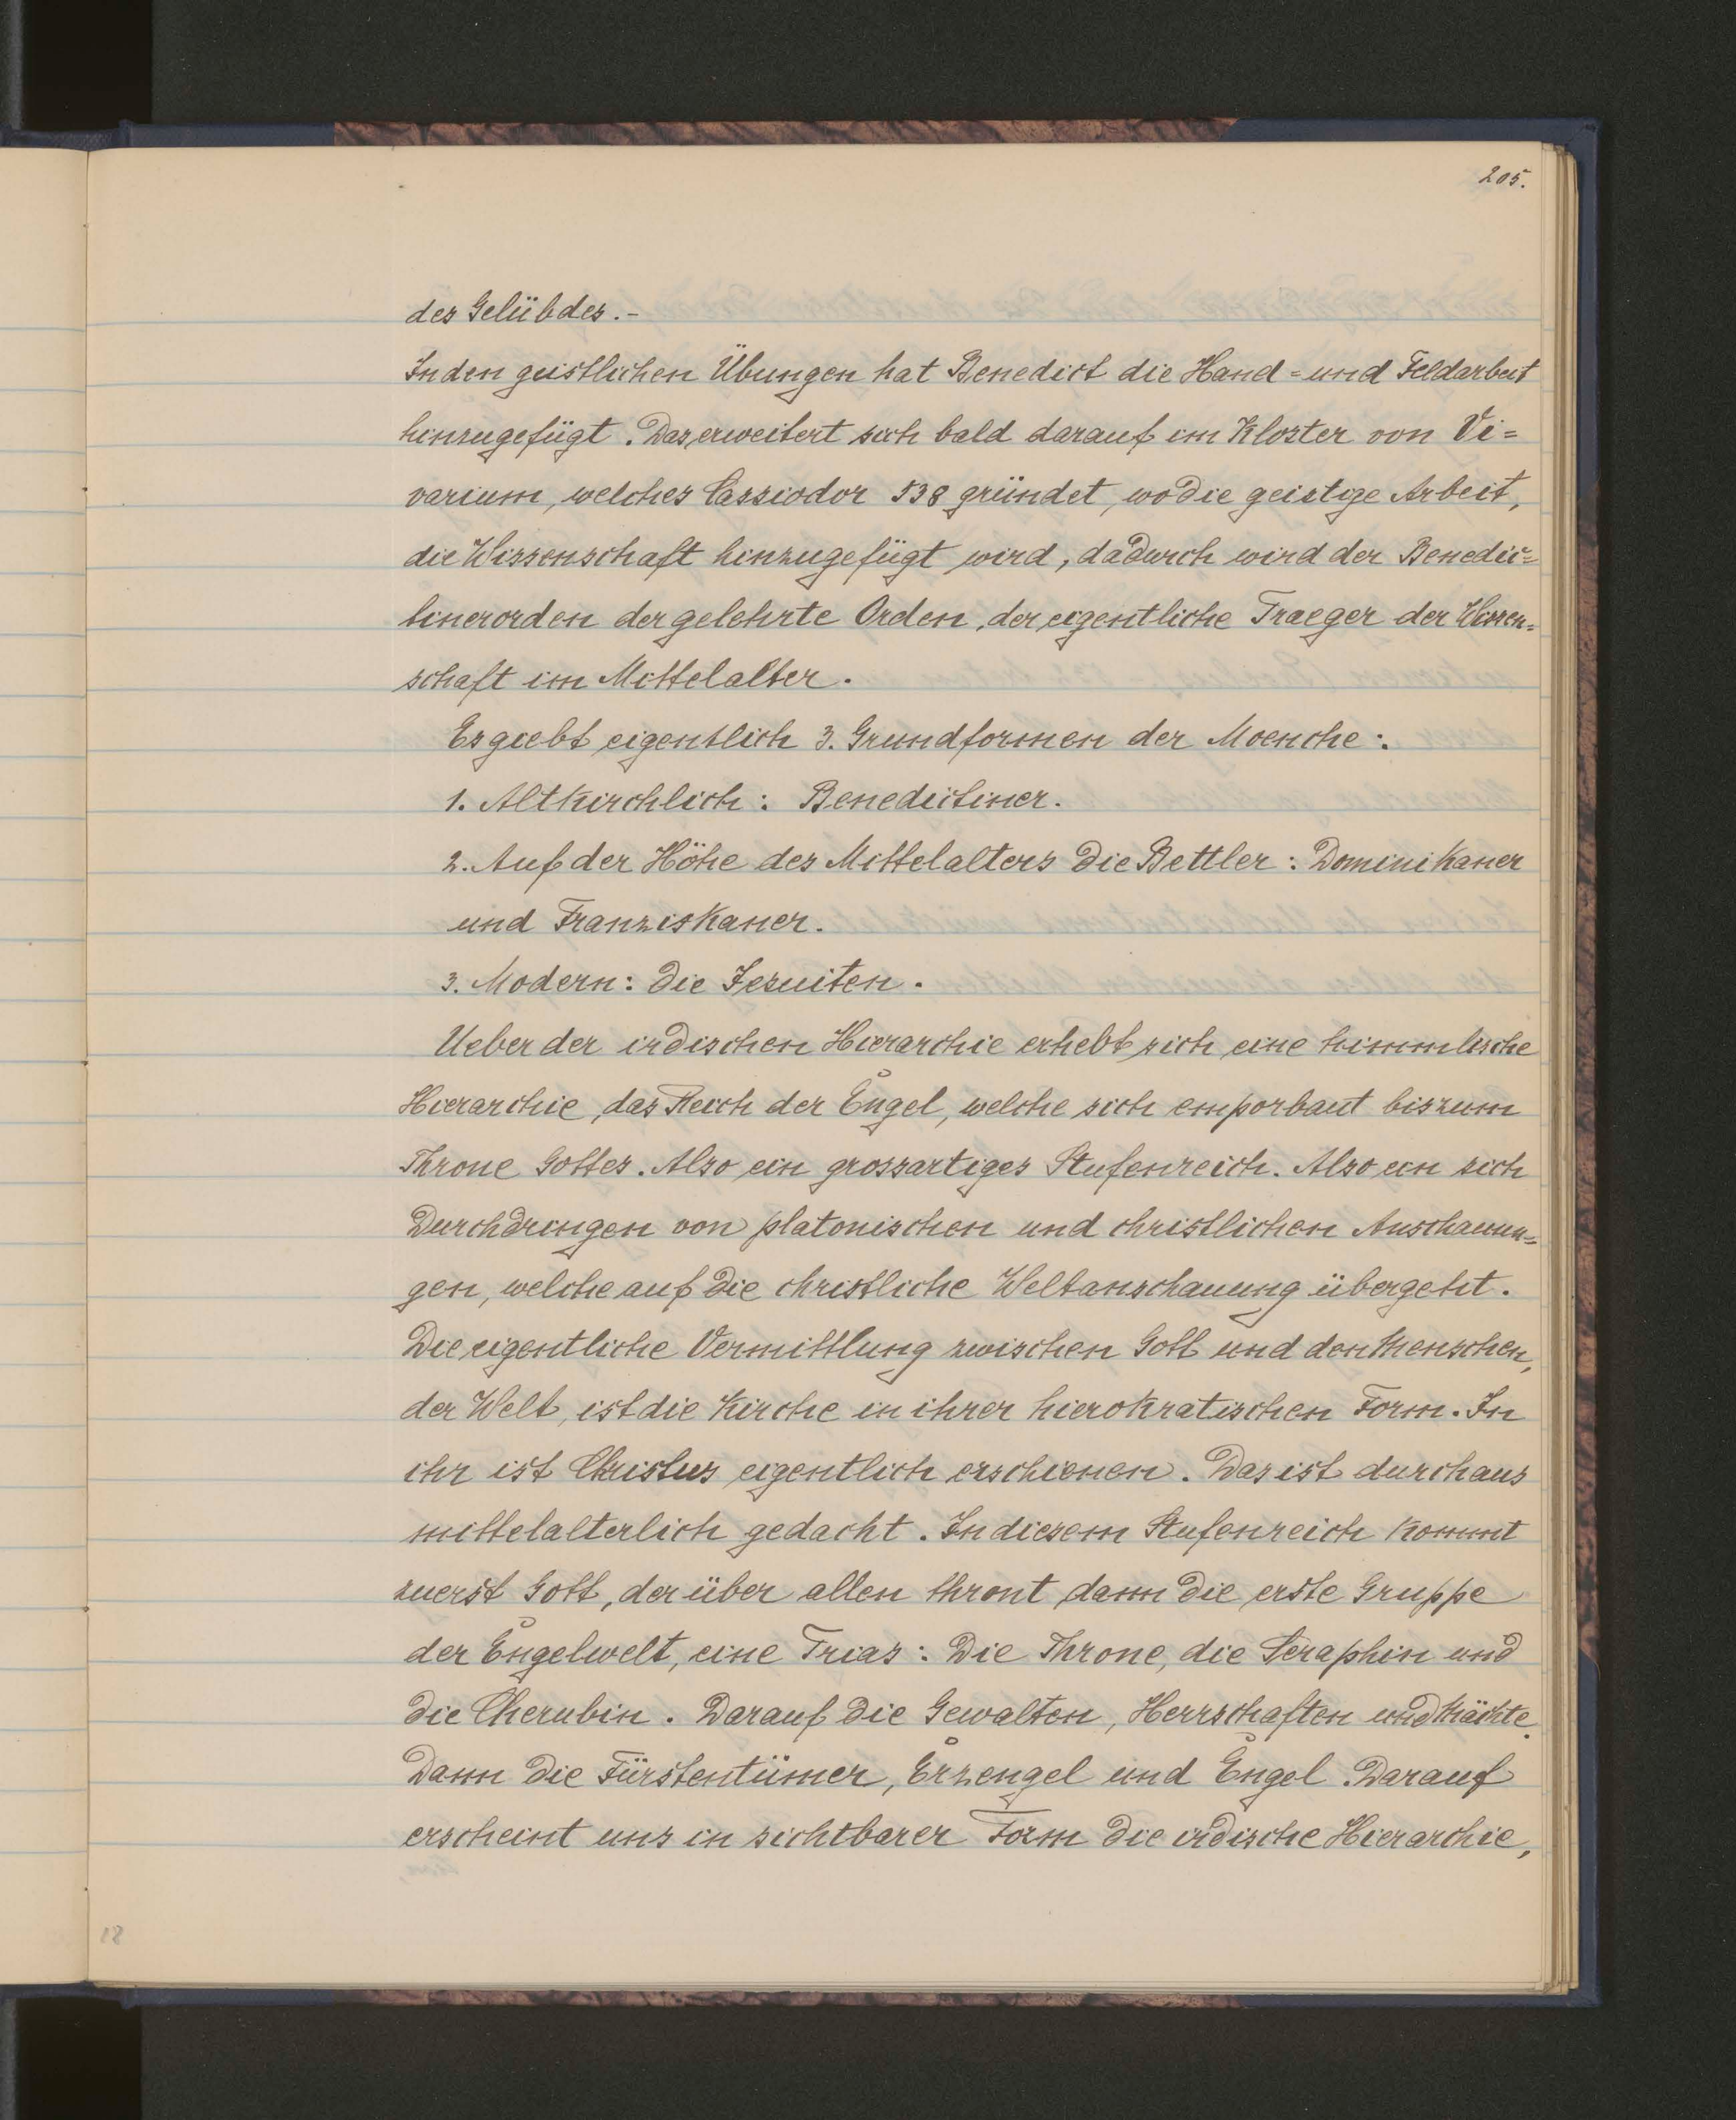 205.
des Gelübdes.-
In den geistlichen Übungen hat Benedict die Hand = und Feldarbeit
hinzugefügt. Das erweitert sich bald darauf im Kloster von Vi=
varium, welches Cassiodor 538 gründet, wo die geistige Arbeit,
die Wissenschaft hinzugefügt wird, dadurch wird der Benedic=
tinerorden der gelehrte Orden, der eigentliche Traeger der Wissen=
schaft im Mittelalter.
Es giebt eigentlich 3. Grundformen der Moenche:
1. Altkirchlich: Benedictiner.
2. Auf der Höhe des Mittelalters die Bettler: Dominikaner
und Franziskaner.
3. Modern: die Jesuiten.
Ueber der irdischen Hierarchie erhebt sich eine himmlische
Hierarchie, das Reich der Engel, welche sich emporbaut bis zum
Throne Gottes. Also ein grossartiges Stufenreich. Also ein sich
Durchdringen von platonischen und christlichen Anschauun=
gen, welche auf die christliche Weltanschauung übergeht.
Die eigentliche Vermittlung zwischen Gott und den Menschen,
der Welt, ist die Kirche in ihrer hierokratischen Form. In
ihr ist Christus eigentlich erschienen. Das ist durchaus
mittelalterlich gedacht. In diesem Stufenreich kommt
zuerst Gott, der über allen thront, dann die erste Gruppe
der Engelwelt, eine Trias: Die Throne, die Seraphin und
die Cherubin. Darauf die Gewalten, Herrschaften und Mächte.
Dann die Fürstentümer, Erzengel und Engel. Darauf
erscheint uns in sichtbarer Form die irdische Hierarchie,
18